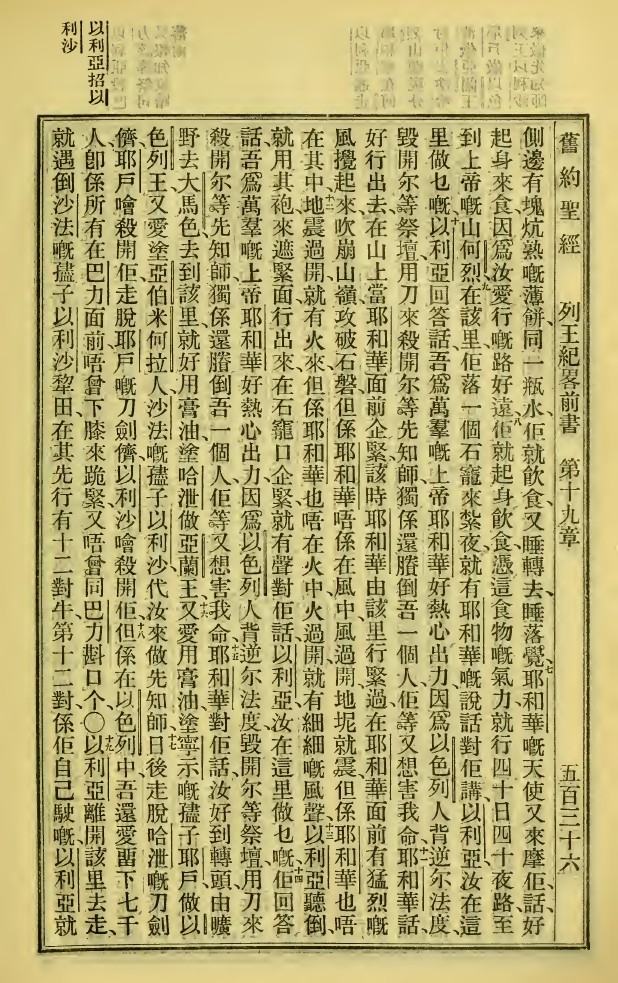 以利亞招以
利沙
舊約聖經　列王紀畧前書　第十九章　五百三十六
側邊有塊炕熟嘅薄餅、同一瓶水、佢就飲食、又睡轉去睡落覺、七耶和華嘅天使又來摩佢、話、好
起身來食、因爲汝愛行嘅路好遠、八佢就起身飲食、憑這食物嘅氣力、就行四十日四十夜路、至
到上帝嘅山何烈、九在該里佢落一個石竉來紮夜、就有耶和華嘅說話對佢講、以利亞汝在這
里做乜嘅、十以利亞回答話、吾爲萬羣嘅上帝耶和華好熱心出力、因爲以色列人背逆尔法度、
毀開尔等祭壇、用刀來殺開尔等先知師、獨係還賸倒吾一個人、佢等又想害我命、十一耶和華話、
好行出去、在山上當耶和華面前企緊、該時耶和華由該里行緊過、在耶和華面前有猛烈嘅
風攪起來、吹崩山嶺、攻破石磐、但係耶和華唔係在風中、風過開、地坭就震、但係耶和華也唔
在其中、十二地震過開、就有火來、但係耶和華也唔在火中、火過開、就有細細嘅風聲、十三以利亞聽倒、
就用其袍來遮緊面、行出來、在石竉口企緊、就有聲對佢話、以利亞汝在這里做乜嘅、十四佢回答
話、吾爲萬羣嘅上帝耶和華好熱心出力、因爲以色列人背逆尔法度、毀開尔等祭壇、用刀來
殺開尔等先知師、獨係還賸倒吾一個人、佢等又想害我命、十五耶和華對佢話、汝好到轉頭、由曠
野去大馬色、去到該里、就好用膏油塗哈泄做亞蘭王、十六又愛用膏油塗寧示嘅孻子耶戶做以
色列王、又愛塗亞伯米何拉人沙法嘅孻子以利沙、代汝來做先知師、十七日後走脫哈泄嘅刀劍
儕、耶戶噲殺開佢、走脫耶戶嘅刀劍儕、以利沙噲殺開佢、十八但係在以色列中、吾還愛畱下七千
人、卽係所有在巴力面前唔曾下膝來跪緊、又唔曾同巴力斟口个、〇十九以利亞離開該里去走、
就遇倒沙法嘅孻子以利沙犂田、在其先行有十二對牛、第十二對係佢自己駛嘅、以利亞就